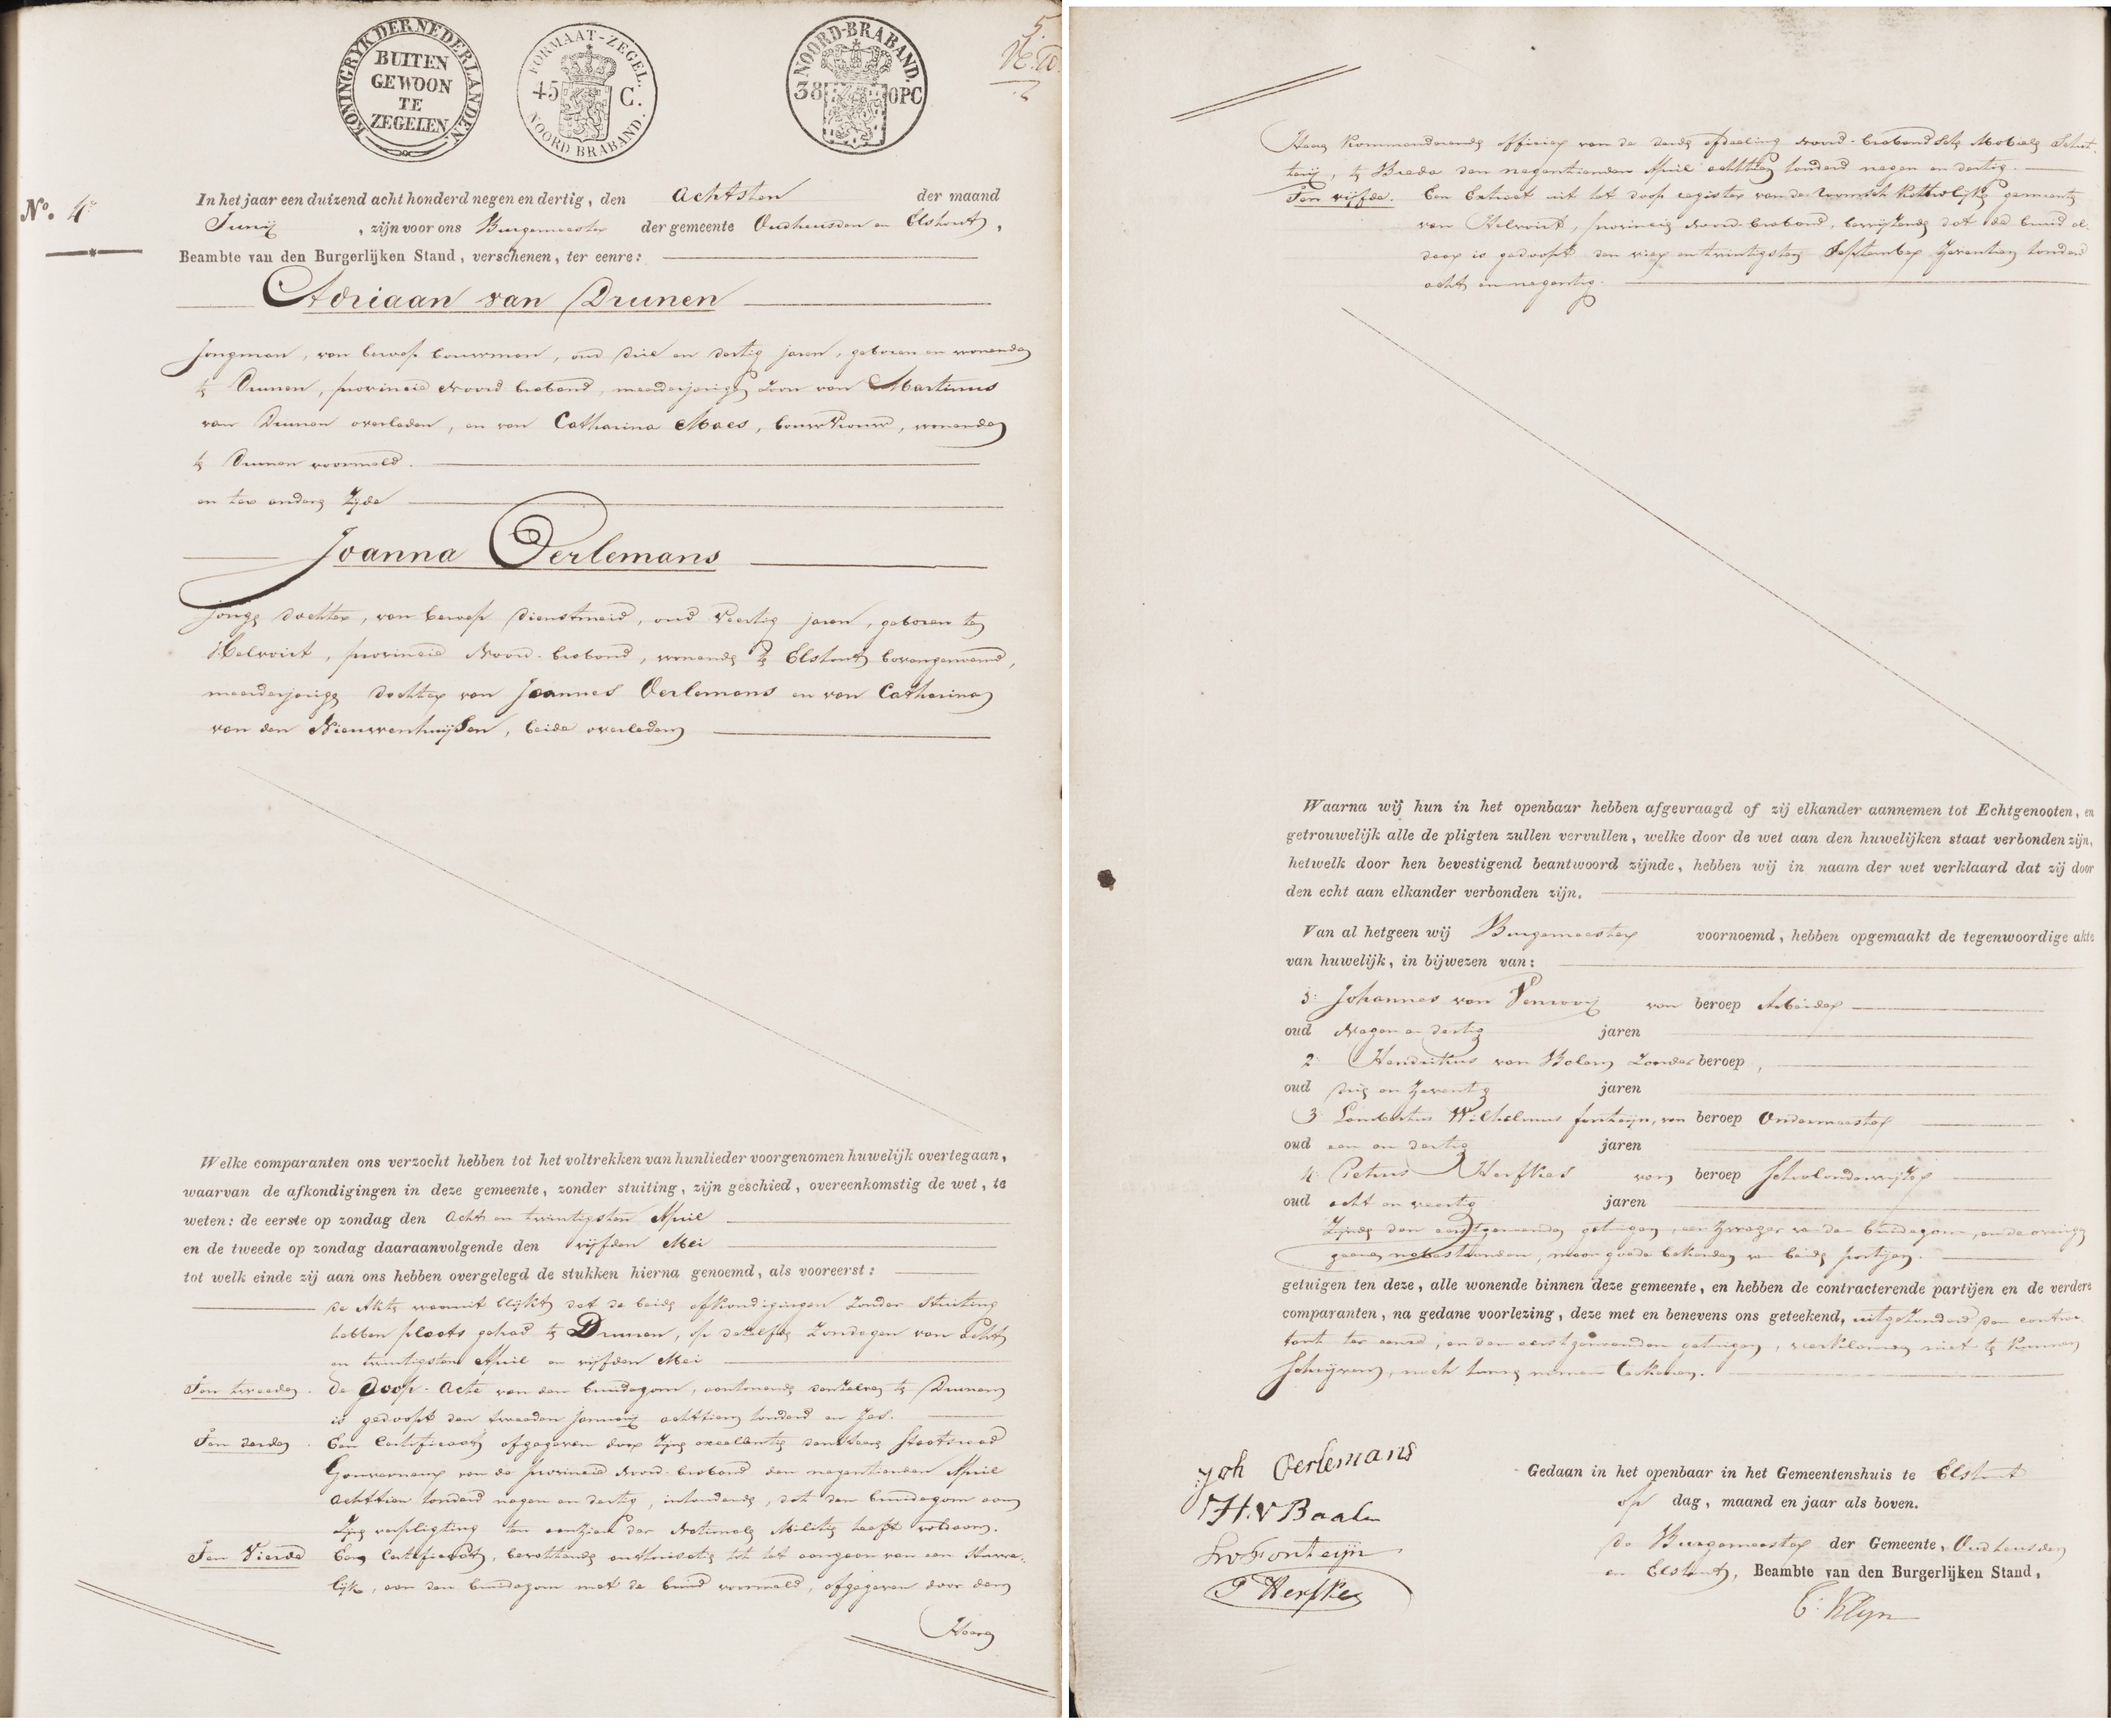 KONINGRYK DER NEDERLANDEN
BUITEN
GEWOON
TE
ZEGELEN
FORMAAT-ZEGEL.
45 C.
NOORD BRABAND.
NOORD-BRABAND.
38 OPC
5.
No. 4.
In het jaar een duizend acht honderd negen en dertig, den Achtsten der maand
Junij, zijn voor ons Burgemeester der gemeente Oudheusden en Elshout,
Beambte van den Burgerlijken Stand, verschenen, ter eenre:
Adriaan van Drunen
Jongman, van beroep bouwman, oud drie en dertig jaren, geboren en wonende
te Drunen, provincie Noord-braband, meerderjarige zoon van Martinus
van Drunen overleden, en van Catharina Maes, bouwvrouw, wonende
te Drunen voormeld.
en ter andere zijde
Joanna Oerlemans
jonge dochter, van beroep dienstmeid, oud Veertig jaren, geboren te
Helvoirt, provincie Noord-braband, wonende te Elshout bovengenoemd,
meerderjarige dochter van Joannes Oerlemans en van Catharina
van den Nieuwenhuijsen, beide overleden
Welke comparanten ons verzocht hebben tot het voltrekken van hunlieder voorgenomen huwelijk overtegaan,
waarvan de afkondigingen in deze gemeente, zonder stuiting, zijn geschied, overeenkomstig de wet, te
weten: de eerste op zondag den acht en twintigsten April
en de tweede op zondag daaraanvolgende den vijfden Mei
tot welk einde zij aan ons hebben overgelegd de stukken hierna genoemd, als vooreerst:
de Akte waaruit blijkt dat de beide afkondigingen zonder stuiting
hebben plaats gehad te Drunen, op dezelfde Zondagen van acht
en twintigsten April en vijfden Mei
Ten tweeden. De Doop-Acte van den bruidegom, aantonende dat dezelve te Drunen
is gedoopt den tweeden January achttien honderd en zes.
Ten derden. Een Certificaat afgegeven door zijne excellentie den Heere Staatsraad
Gouverneur van de provincie Noord-braband den negentienden April
achttien honderd negen en dertig, inhoudende, dat den bruidegom aan
zijne verpligting ten aanzien der Nationale Militie heeft voldaan.
Ten Vierde Een Certificaat, bevattende authorisatie tot het aangaan van een Huwe-
lijk, aan den bruidegom met de bruid voormeld, afgegeven door den
Heere
Heere Kommanderende officier van de derde afdeeling Noord-brabandsche Mobiele Schut-
terij, te Breda den negentienden April achttien honderd negen en dertig.
Ten vijfde. Een Extract uit het doop register van de Roomsch Katholijke gemeente
van Helvoirt, provincie Noord-braband, bewijzende dat de bruid al-
daar is gedoopt den vier en twintigsten September Zeventien honderd
acht en negentig.
Waarna wij hun in het openbaar hebben afgevraagd of zij elkander aannemen tot Echtgenooten, en
getrouwelijk alle de pligten zullen vervullen, welke door de wet aan den huwelijken staat verbonden zijn,
hetwelk door hen bevestigend beantwoord zijnde, hebben wij in naam der wet verklaard dat zij door
den echt aan elkander verbonden zijn.
Van al hetgeen wij Burgemeester voornoemd, hebben opgemaakt de tegenwoordige akte
van huwelijk, in bijwezen van:
1: Johannes van Venrooij van beroep Arbeider
oud Negen en dertig jaren
2: Hendrikus van Balen Zonder beroep,
oud drie en zeventig jaren
3: Lambertus Wilhelmus fonteijn, van beroep Ondermeester
oud een en dertig jaren
4: Petrus Herfkes van beroep Schoolonderwijzer
oud acht en veertig jaren
Zijnde den eerstgenoemden getuigen, een zwager van den bruidegom, en de overige
geene nabestaanden, maar goede bekenden van beide partijen.
getuigen ten deze, alle wonende binnen deze gemeente, en hebben de contracterende partijen en de verdere
comparanten, na gedane voorlezing, deze met en benevens ons geteekend, uitgezonderd den contrac-
tant ter eenre, en den eerstgenoemden getuigen, verklarende niet te kunnen
Schrijven, noch hunne namen teekenen.
Joh Oerlemans
H: v Baale
Lw Fonteijn
P Herfkes
Gedaan in het openbaar in het Gemeentenshuis te Elshout
op dag, maand en jaar als boven.
De Burgemeester der Gemeente, Oudheusden
en Elshout, Beambte van den Burgerlijken Stand,
C. Klyn